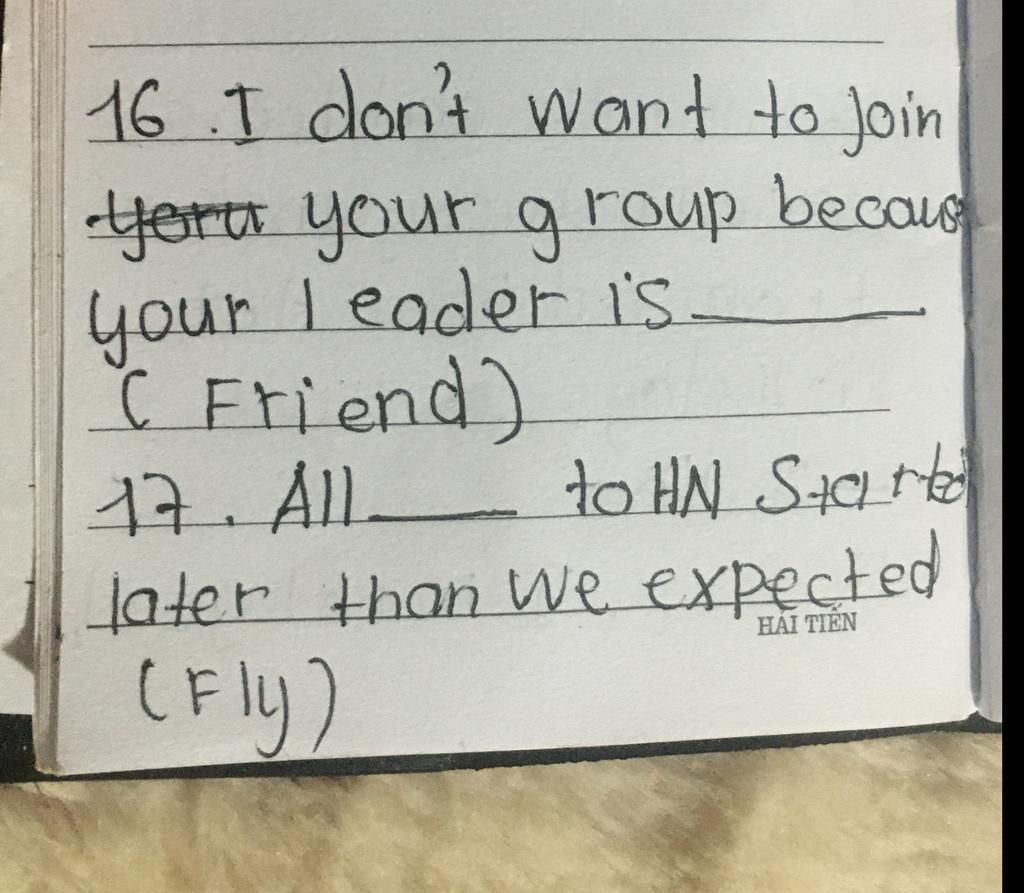 16. I don't want to join
yoru your group because
your leader is ______
(Friend)
17. All ______ to HN Started
later than we expected
HẢI TIẾN
(Fly)